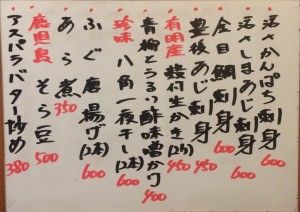 活さかんぱち刺身 600
活さしまあじ刺身 600
金目鯛刺身 600
豊後あじ刺身 450
有明産 殻付生かき(2ケ) 450
青柳とうるい酢味噌かけ 400
珍味 八角一夜干し(2本) 600
ふぐ唐揚げ(2本) 600
あら煮 350
鹿児島 そら豆 500
アスパラバター炒め 380